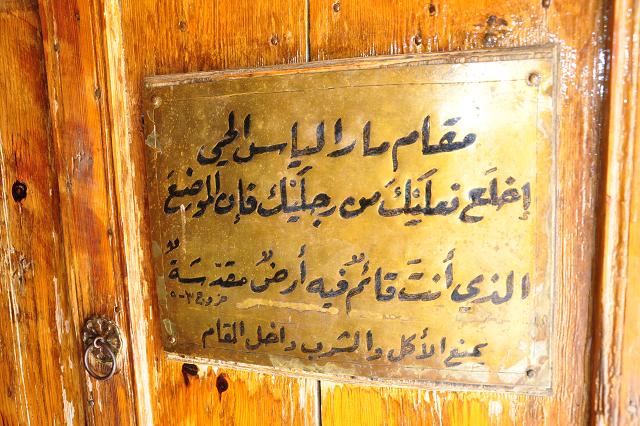 مقام مار الياس الحي
إخلَع نعلَيْكَ من رجلَيْك فإن الموضعَ
الذي أنتَ قائمٌ فيه أرضٌ مقدّسَةٌ
خروج ٣-٥
يمنع الأكل والشرب داخل المقام